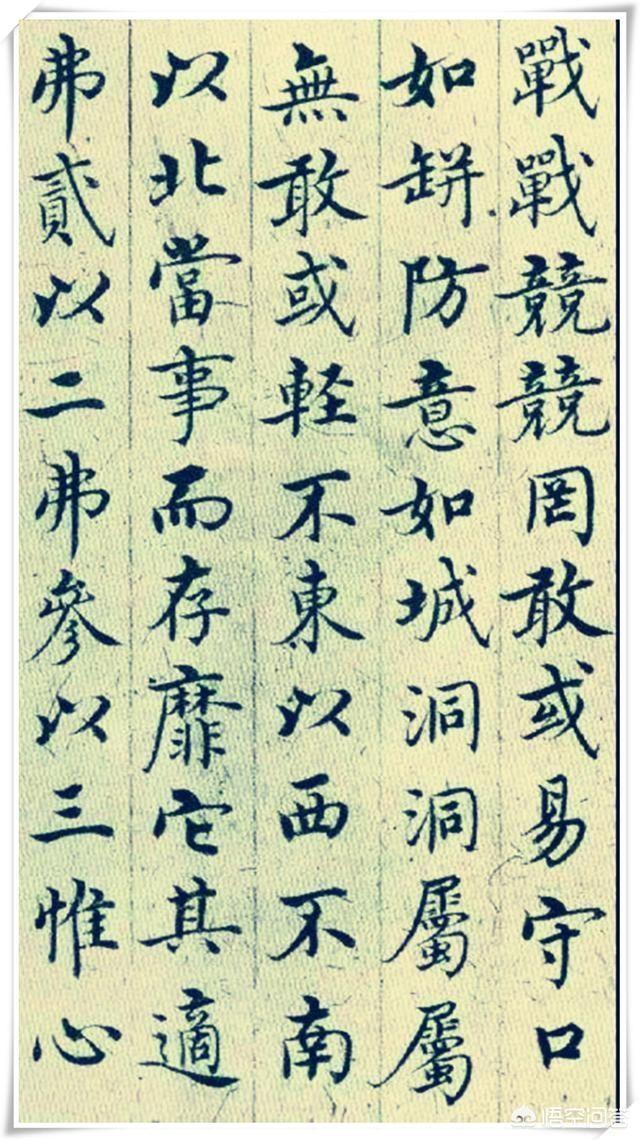 戰戰競競罔敢或易守口
如缾防意如城洞洞屬屬
無敢或軽不東以西不南
以北當事而存靡它其適
弗貳以二弗參以三惟心
悟空问答